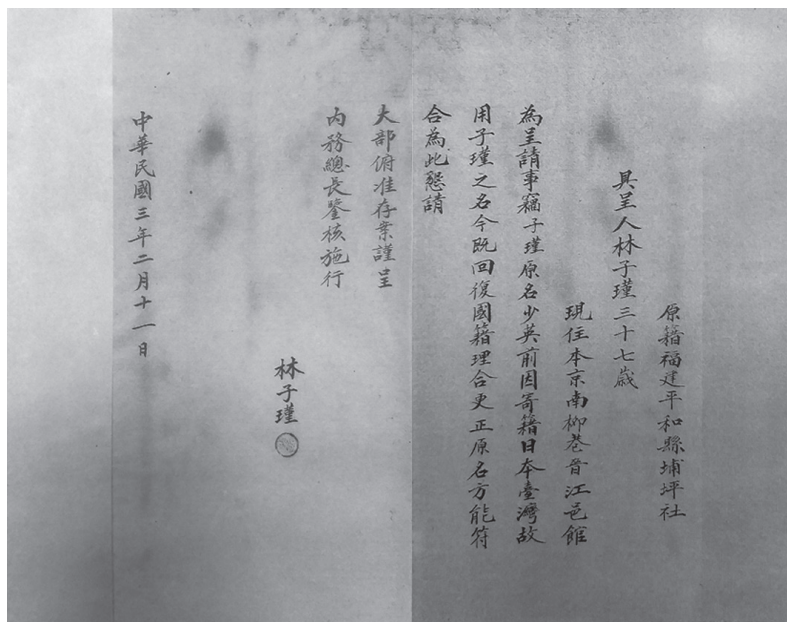 原籍福建平和縣埔坪社
具呈人林子瑾三十七歲
現住本京南柳巷晉江邑館
為呈請事竊子瑾原名少英前因寄籍日本臺灣故
用子瑾之名今既回復國籍理合更正原名方能符
合為此懇請
大部俯准存案謹呈
內務總長鑒核施行
林子瑾
中華民國三年二月十一日